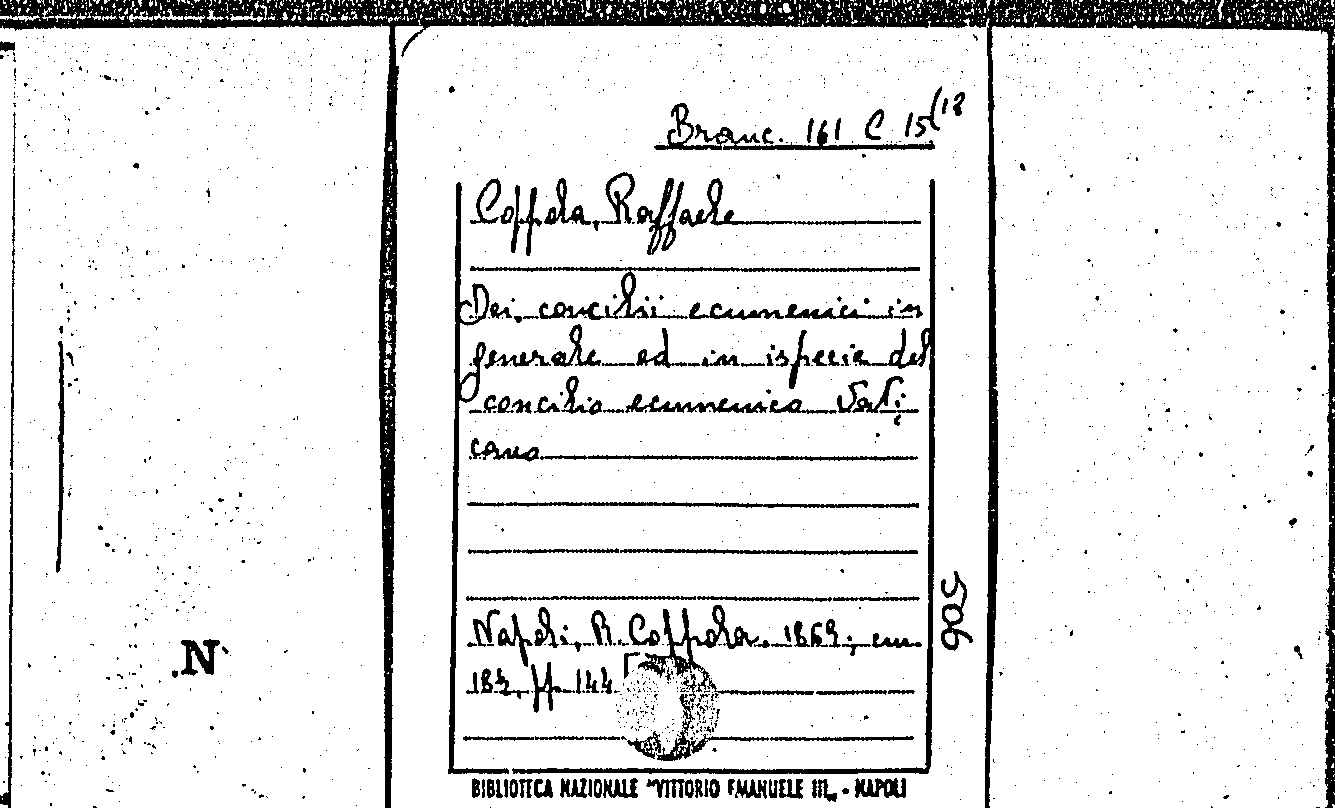 Branc. 161 C 15(12
Coppola, Raffaele
Dei concilii ecumenici in
generale ed in ispecie del
concilio ecumenico Vati
cano
Napoli, R. Coppola. 1869; cm.
18½, pp. 144
506
.N
BIBLIOTECA NAZIONALE "VITTORIO EMANUELE III„ - NAPOLI